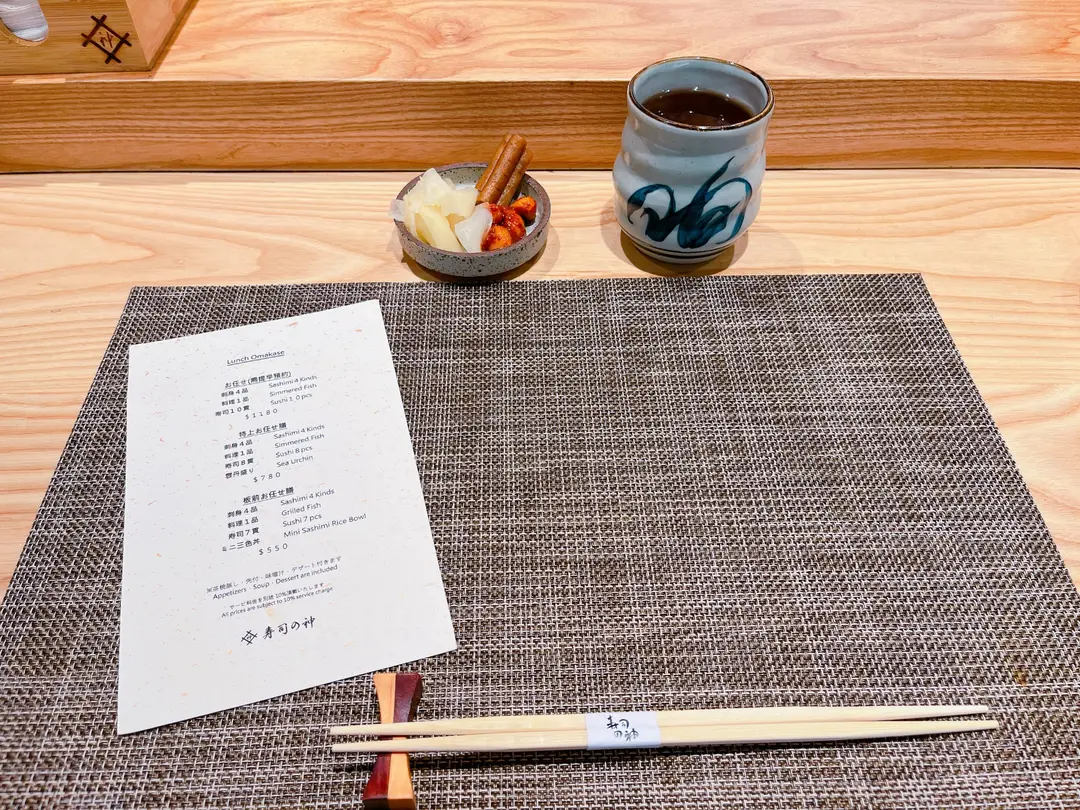 Lunch Omakase
お任せ(需提早預約)
刺身４品 Sashimi 4 Kinds
料理１品 Simmered Fish
寿司１０貫 Sushi 1 0 pcs
$ 1 1 8 0
特上お任せ膳
刺身４品 Sashimi 4 Kinds
料理１品 Simmered Fish
寿司８貫 Sushi 8 pcs
雲丹盛り Sea Urchin
$ 7 8 0
板前お任せ膳
刺身４品 Sashimi 4 Kinds
料理１品 Grilled Fish
寿司７貫 Sushi 7 pcs
ミニ三色丼 Mini Sashimi Rice Bowl
$ 5 5 0
※茶碗蒸し・先付・味噌汁・デザート付きます
Appetizers・Soup・Dessert are included
サービ料金を別途 10%頂戴いたします
All prices are subject to 10% service charge
寿司の神
寿司
の神